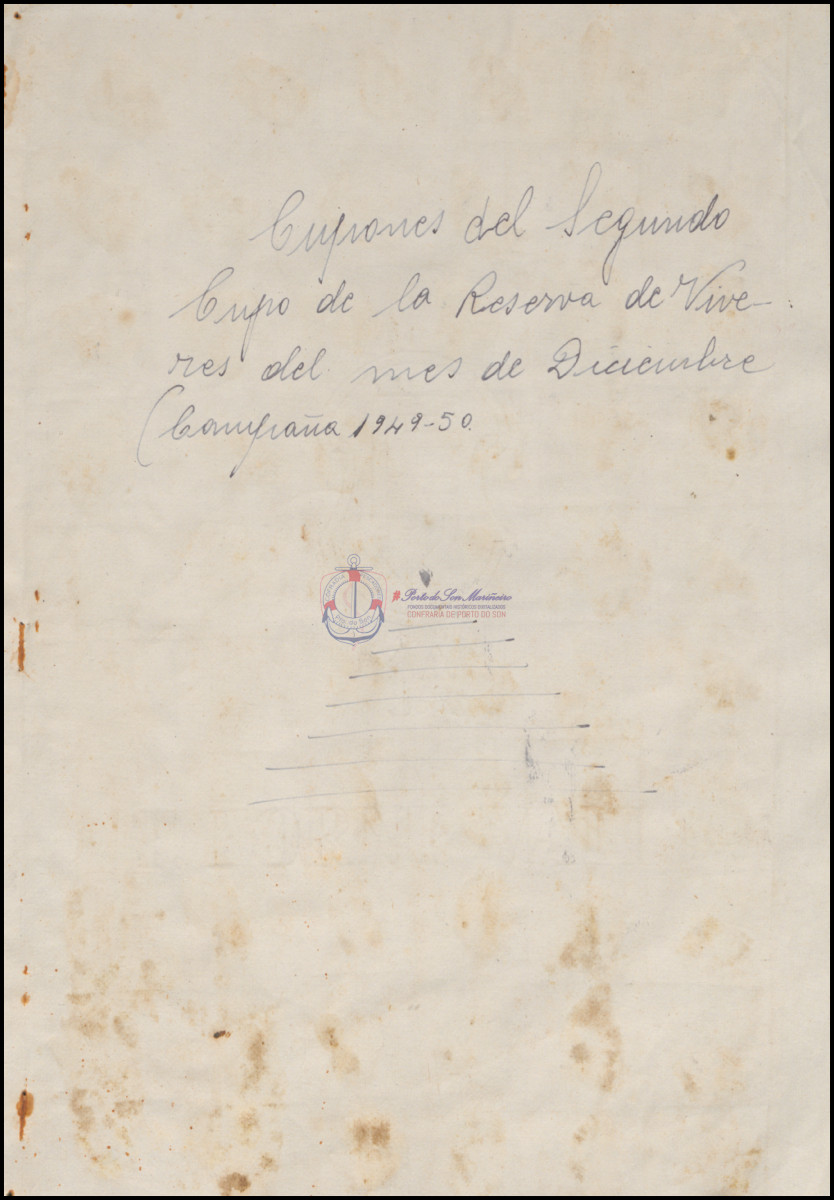 Cupones del Segundo
Cupo de la Reserva de Vive-
res del mes de Diciembre
(Campaña 1949-50.
#Porto do Son Mariñeiro
FONDOS DOCUMENTAIS HISTÓRICOS DIXITALIZADOS
CONFRARÍA DE PORTO DO SON